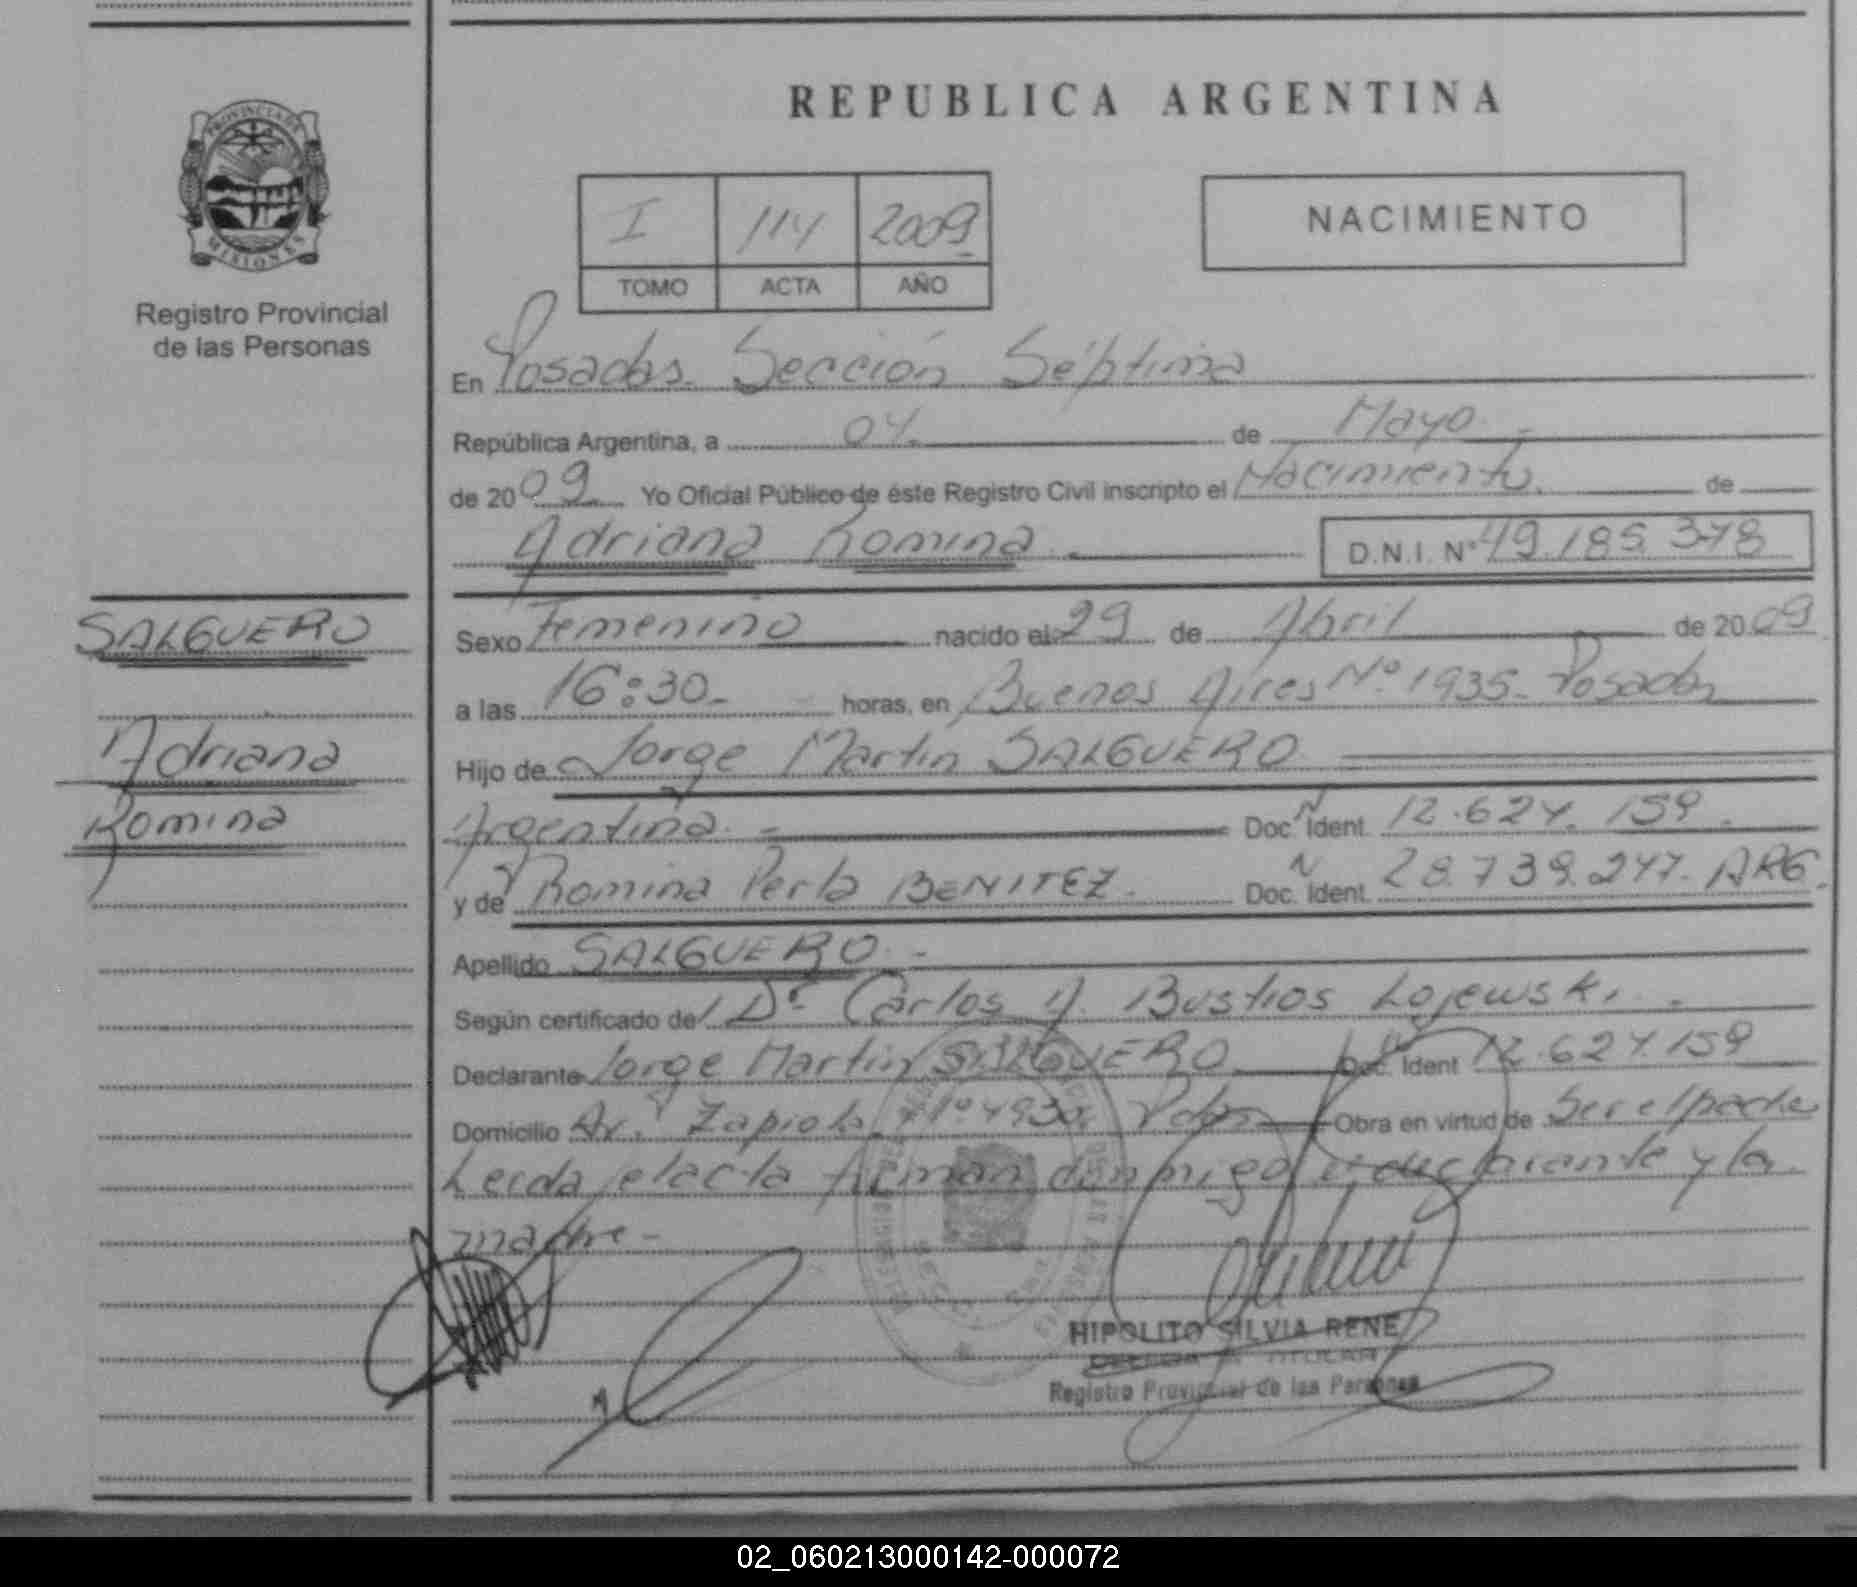 REPUBLICA ARGENTINA
PROVINCIA DE
MISIONES
Registro Provincial
de las Personas
I 114 2009
TOMO ACTA AÑO
NACIMIENTO
En Posadas Sección Séptima
República Argentina, a 04 de Mayo
de 2009 Yo Oficial Público de éste Registro Civil inscripto el Nacimiento de
Adriana Romina D.N.I. Nº 49.185.378
SALGUERO
Adriana
Romina
Sexo Femenino nacido el 29 de Abril de 2009
a las 16:30 horas, en Buenos Aires Nº 1935 Posadas
Hijo de Jorge Martin SALGUERO
Argentina Doc. Ident. 12.624.159
y de Romina Perla BENITEZ Doc. Ident. 28.739.247. ARG.
Apellido SALGUERO
Según certificado de Dr Carlos A. Bustios Lojewski
Declarante Jorge Martin SALGUERO Doc. Ident 12.624.159
Domicilio Av. Zapiola Nº 4930 Pdas Obra en virtud de Ser el padre
Leida el acta firman conmigo el declarante y la
madre
HIPOLITO SILVIA RENE
TITULAR
Registro Provincial de las Personas
02_060213000142-000072